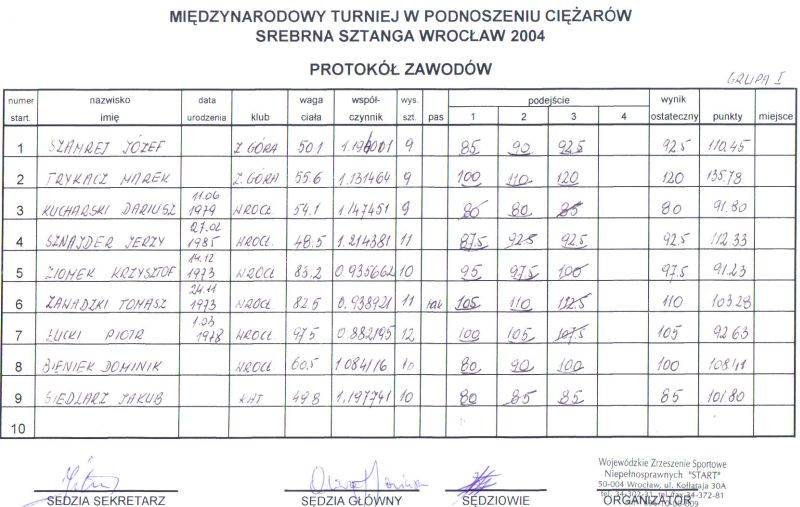 MIĘDZYNARODOWY TURNIEJ W PODNOSZENIU CIĘŻARÓW
SREBRNA SZTANGA WROCŁAW 2004
PROTOKÓŁ ZAWODÓW
GRUPA I
numer start. nazwisko imię data urodzenia klub waga ciała współ-czynnik wys. szt. pas podejście 1 2 3 4 wynik ostateczny punkty miejsce
1 SZAMREJ JÓZEF Z GÓRA 50.1 9 85 90 92.5 92.5 110.45
2 TRYKACZ MAREK Z.GÓRA 55.6 1.131464 9 100 110 120 120 135.78
3 KUCHARSKI DARIUSZ 11.06 1979 WROCŁ 54.1 1.147451 9 80 80 85 80 91.80
4 SZNAJDER JERZY 27.02 1985 WROCŁ. 48.5 1.214381 11 87.5 92.5 92.5 92.5 112.33
5 ZIOMEK KRZYSZTOF 14.12 1973 WROCŁ 83.2 0.935662 10 95 97.5 100 97.5 91.23
6 ZAWADZKI TOMASZ 24.11 1973 WROCŁ 82.5 0.938921 11 105 110 112.5 110 103.28
7 ŁUCKI PIOTR 1.03 1978 WROCŁ 97.5 0.882195 12 100 105 107.5 105 92.63
8 BIENIEK DOMINIK WROCŁ 60.5 1.084116 10 80 90 100 100 108.41
9 SIEDLARZ JAKUB KAT 49.8 1.197741 10 80 85 85 85 101.80
10
SĘDZIA SEKRETARZ SĘDZIA GŁÓWNY SĘDZIOWIE ORGANIZATOR
Wojewódzkie Zrzeszenie Sportowe
Niepełnosprawnych "START"
50-004 Wrocław, ul. Kołłątaja 30A